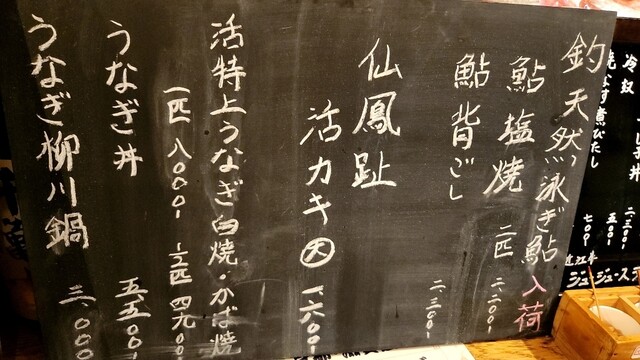 釣天然泳ぎ鮎入荷
鮎塩焼 二匹 二、二〇〇
鮎背ごし 二、三〇〇
仙鳳趾
活カキ 大 一、六〇〇
活特上うなぎ白焼・かば焼
一匹 八〇〇〇 ½匹 四九〇〇
うなぎ丼 五、五〇〇
うなぎ柳川鍋 二、〇〇〇
二、三〇〇
冷奴 五〇〇
焼なす煮びたし 七〇〇
近江牛